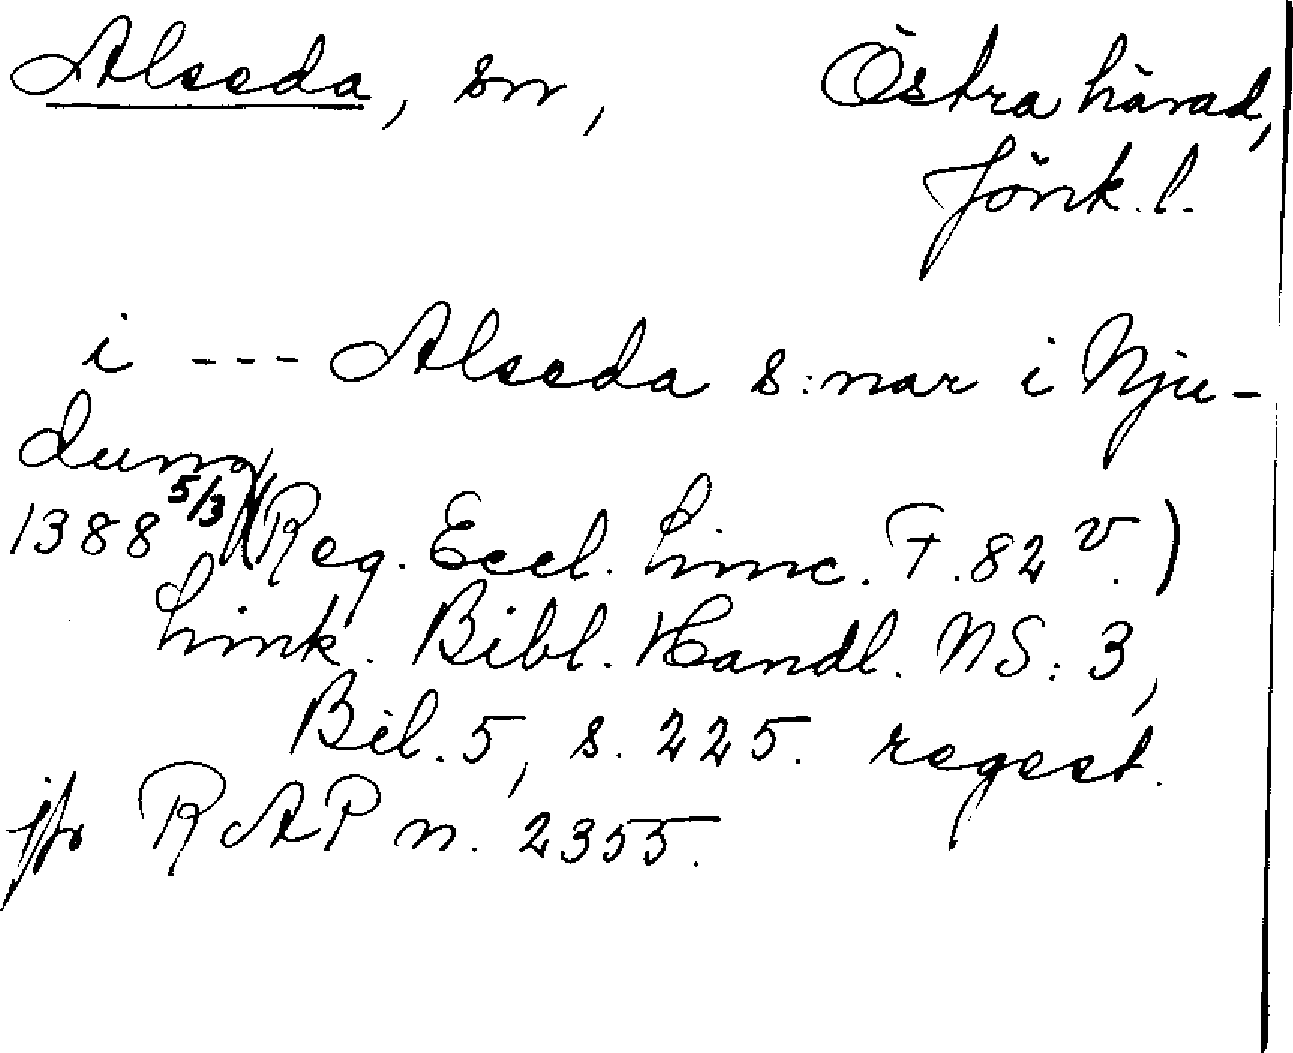 Alseda, sn, Östra härad,
Jönk. l.
i --- Alseda s:nar i Nju-
dung
1388 5/3 (Reg. Eccl. Linc. F. 82 v.)
Link. Bibl. Handl. NS: 3,
Bil. 5, s. 225. regest.
jfr RAP n. 2355.